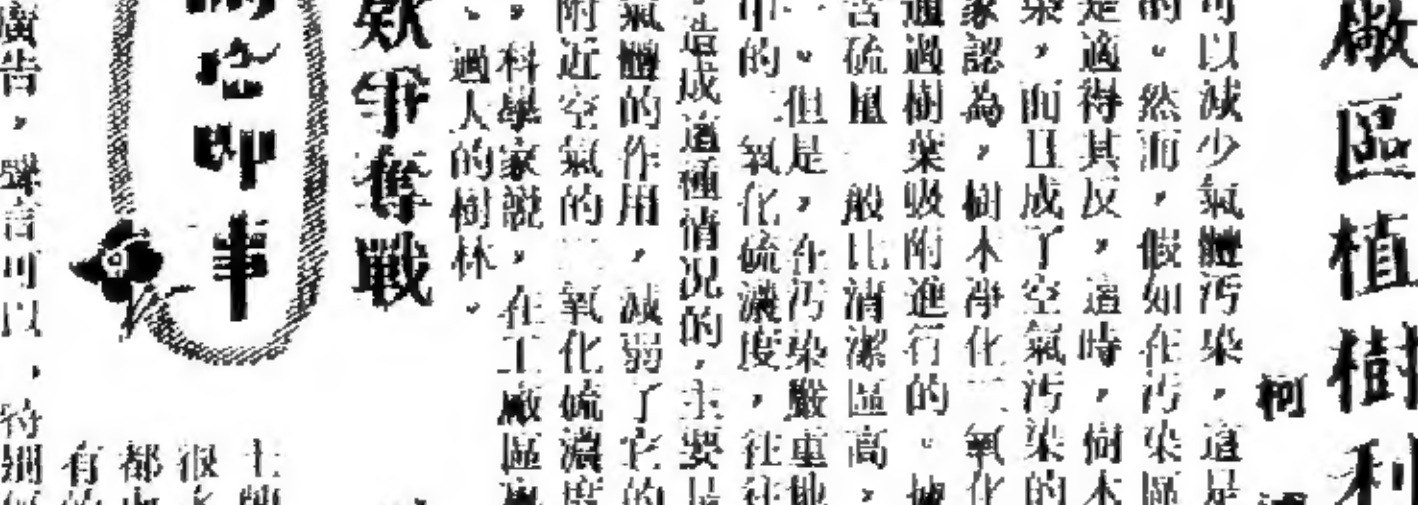 廠區植樹利
柯
可以減少氣體污染，這是
的。然而，假如在污染區
是適得其反，這時，樹木
染，而且成了空氣污染的
家認為，樹木淨化二氧化
通過樹葉吸附進行的。據
含硫量一般比清潔區高，
。但是，在污染嚴重地
中的二氧化硫濃度，往往
造成這種情況的，主要是
氣體的作用，減弱了它的
附近空氣的二氧化硫濃度
，科學家說，在工廠區
、過人的樹林。
爭奪戰
事
廣告，聲言可以，特別
主
很
都
有